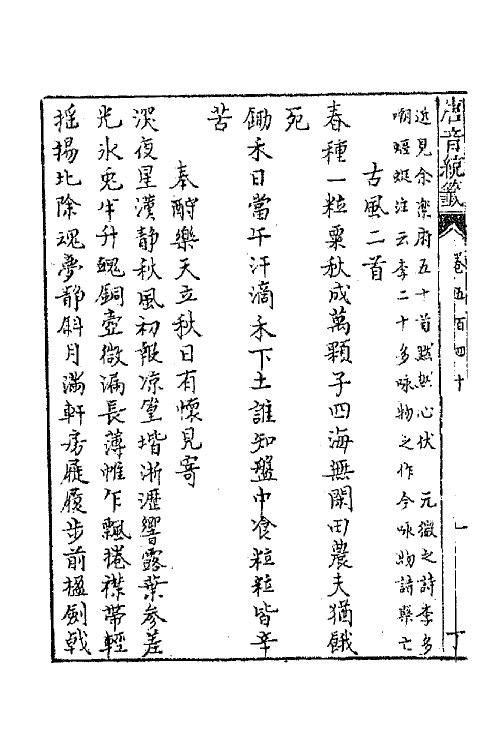 唐音統籤
卷五百四十
近見余樂府五十首默然心伏　元微之詩李多
嘲蝘蜓注云李二十多咏物之作今咏物詩無亡
古風二首
春種一粒粟秋成萬顆子四海無閑田農夫猶餓
死
鋤禾日當午汗滴禾下土誰知盤中飡粒粒皆辛
苦
奉酧樂天立秋日有懷見寄
深夜星漢静秋風初報凉堂堦淅瀝響露葉參差
光氷兎半升魄銅壺微漏長薄帷乍飄捲襟帶輕
揺揚比除魂夢静斜月滿軒房屣履步前楹劍戟